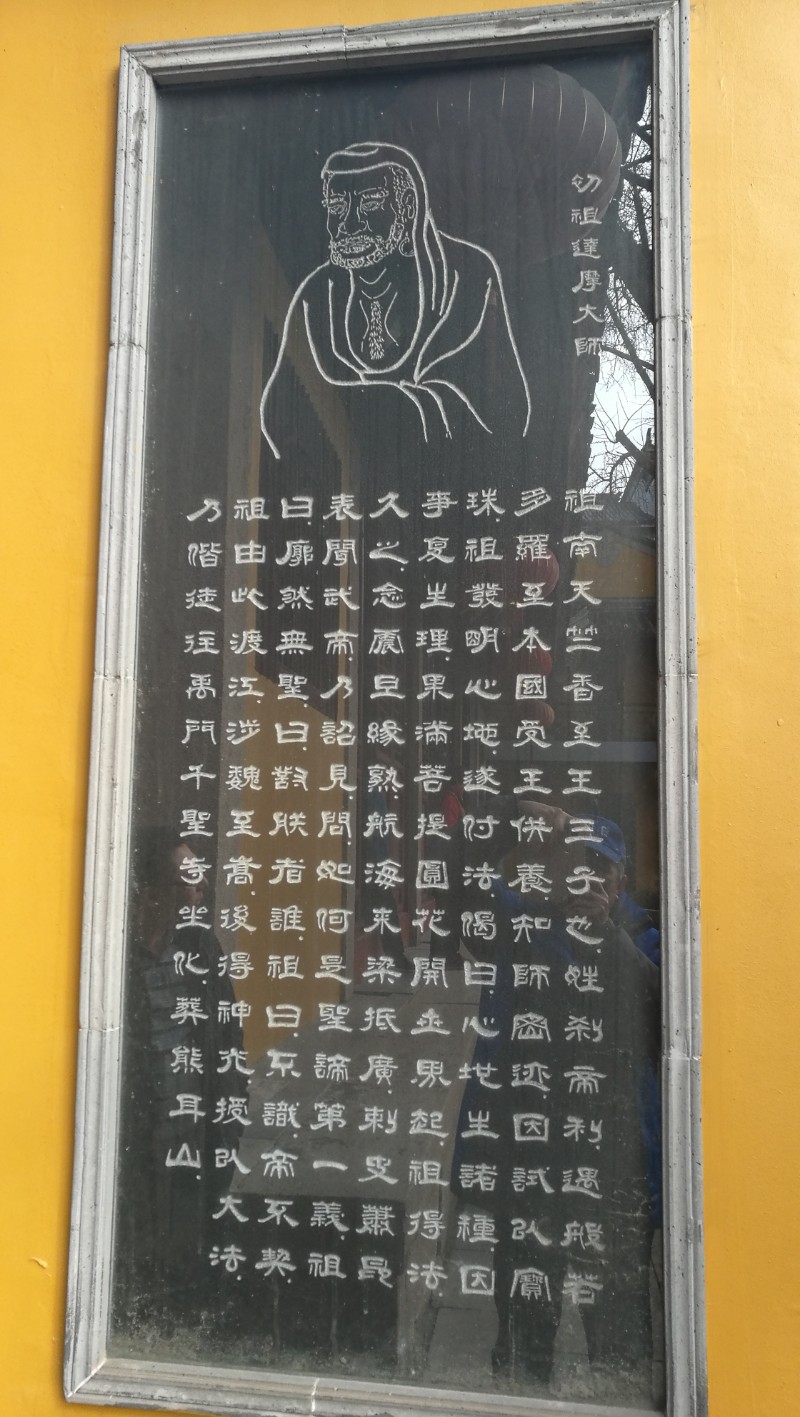 初祖達摩大師
祖南天竺香至王三子也.姓刹帝利.遇般若
多羅至本國受王供養.知師密迹.因試以寶
珠.祖發明心地.遂付法.偈曰.心地生諸種.因
事復生理.果滿菩提圓.花開世界起.祖得法.
久之.念震旦緣熟.航海来梁.抵廣.刺史蕭昂
表聞武帝.乃詔見.問.如何是聖諦第一義.祖
曰.廓然無聖.曰.對朕者誰.祖曰.不識.帝不契.
祖由此渡江.涉魏至嵩.後得神光.授以大法.
乃偕徒往禹門千聖寺坐化.葬熊耳山.